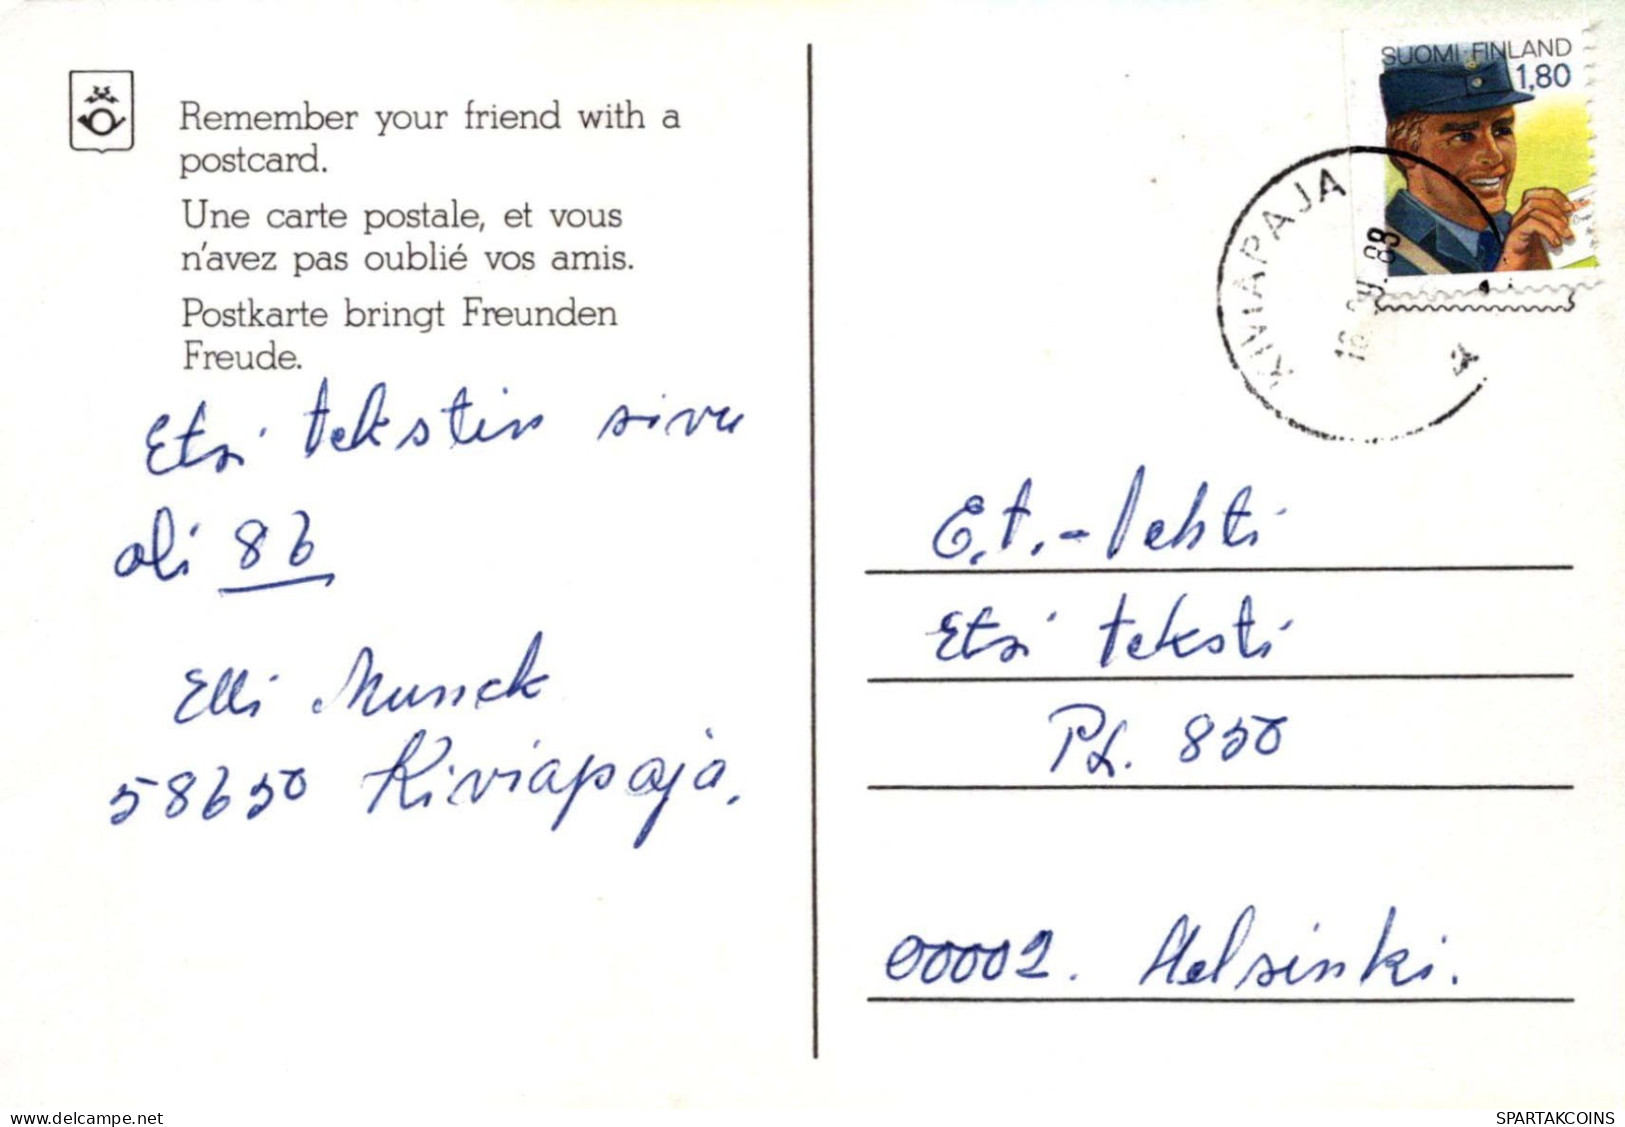 Remember your friend with a
postcard.
Une carte postale, et vous
n'avez pas oublié vos amis.
Postkarte bringt Freunden
Freude.
Etsi tekstin sivu
oli 86
Elli Munck
58650 Kiviapaja.
SUOMI-FINLAND
1,80
KIVIAPAJA
E.T.-lehti
Etsi teksti
PL. 850
00002. Helsinki.
delcampe.net
SPARTAKCOINS